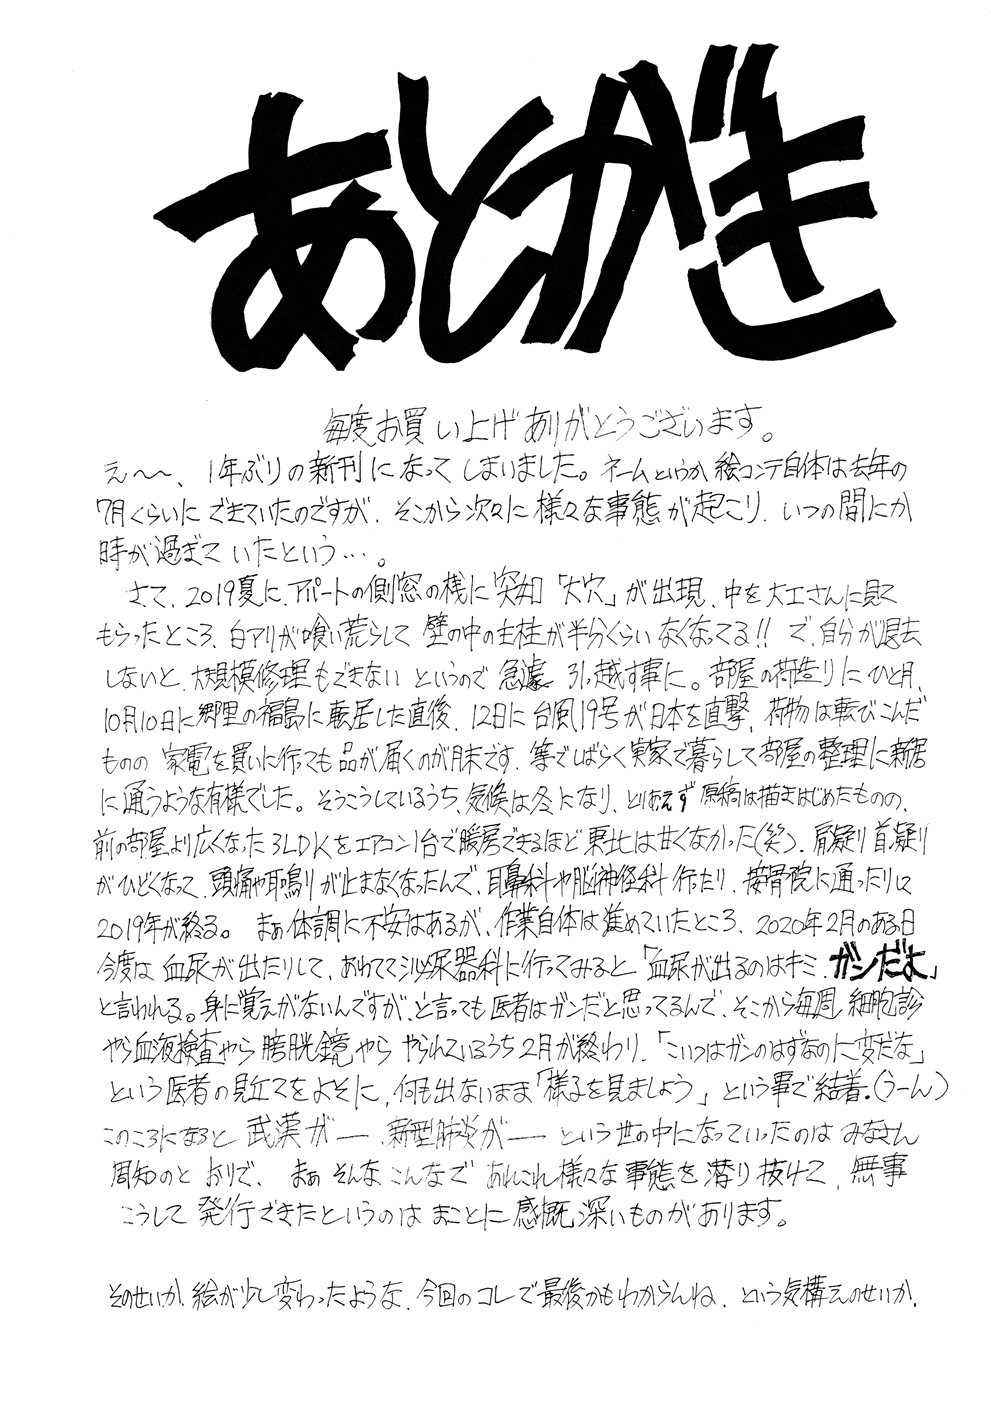 あとがき
毎度お買い上げありがとうございます。
え〜〜、1年ぶりの新刊になってしまいました。ネームというか絵コンテ自体は去年の
7月くらいにできていたのですが、そこから次々に様々な事態が起こり、いつの間にか
時が過ぎていたという…。
さて、2019夏に、アパートの側窓の桟に突如「大穴」が出現、中を大工さんに見て
もらったところ、白アリが喰い荒らして壁の中の主柱が半分くらいなくなってる!!で、自分が退去
しないと、大規模修理もできないというので急遽引っ越す事に。部屋の荷造りにひと月、
10月10日に郷里の福島に転居した直後、12日に台風19号が日本を直撃、荷物は転びこんだ
ものの家電を買いに行っても品が届くのが月末です、等でしばらく実家で暮らして部屋の整理に新居
に通うような有様でした。そうこうしているうち、気候は冬になり、とりあえず原稿は描きはじめたものの、
前の部屋より広くなった3LDKをエアコン1台で暖房できるほど東北は甘くなかった(笑)、肩凝り首凝り
がひどくなって、頭痛や耳鳴りが止まなくなったんで、耳鼻科や脳神経科行たり、接骨院に通ったりして
2019年が終る。まぁ体調に不安はあるが、作業自体は進めていたところ、2020年2月のある日
今度は血尿が出たりして、あわてて泌尿器科に行ってみると「血尿が出るのはキミ、ガンだよ」
と言われる。身に覚えがないんですが、と言っても医者はガンだと思ってるんで、そこから毎週細胞診
やら血液検査やら膀胱鏡やらやられているうち2月が終わり、「こいつはガンのはずなのに変だな」
という医者の見立てをよそに、何も出ないまま「様子を見ましょう」という事で結着。(うーん)
このころになると武漢が──、新型肺炎が──という世の中になっていったのはみなさん
周知のとおりで、まぁそんなこんなであれこれ様々な事態を潜り抜けて、無事
こうして発行できたというのはまことに感慨深いものがあります。
そのせいか、絵が少し変わったような、今回のコレで最後かもわからんね、という気構えのせいか、